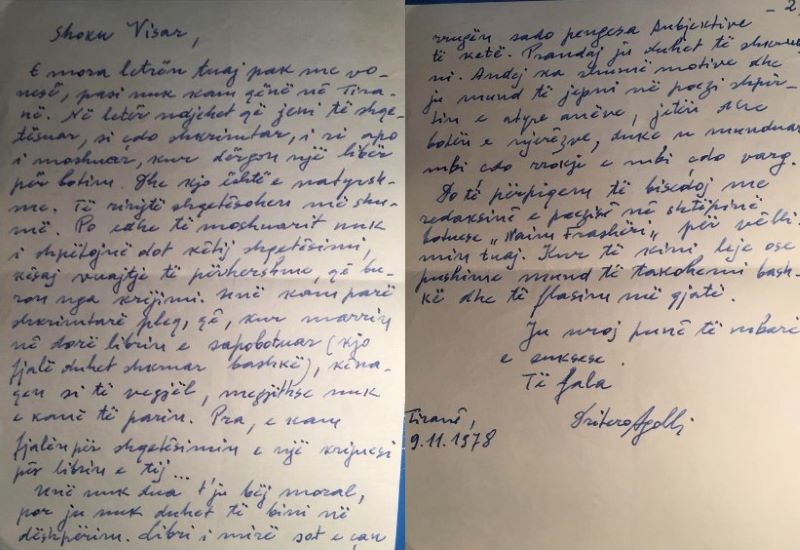 Shoku Visar,
E mora letrën tuaj pak me vo-
nesë, pasi nuk kam qënë në Tira-
në. Në letër ndjehet që jeni të shqe-
tësuar, si çdo shkrimtar, i ri apo
i moshuar, kur dërgon një libër
për botim. Dhe kjo është e natyrsh-
me. Të rinjtë shqetësohen më shu-
më. Po edhe të moshuarit nuk
i shpëtojnë dot këtij shqetësimi,
kësaj vuajtje të përhershme, që bu-
ron nga krijimi. Unë kam parë
shkrimtarë pleq, që, kur marrin
në dorë librin e sapobotuar (kjo
fjalë duhet shkruar bashkë), këna-
qen si të vegjël, megjithse nuk
e kanë të parin. Pra, e kam
fjalën për shqetësimin e një krijuesi
për librin e tij...
Unë nuk dua t'ju bëj moral,
por ju nuk duhet të bini në
dëshpërim. Libri i mirë sot e çan
- 2
rrugën sado pengesa subjektive
të ketë. Prandaj ju duhet të shkrua
ni. Andej ka shumë motive dhe
ju mund të jepni në poezi shpir-
tin e atyre anëve, jetën dhe
botën e njerëzve, duke u munduar
mbi çdo rrokje e mbi çdo varg.
Do të përpiqem të bisedoj me
redaksinë e poezisë në shtëpinë
botuese „Naim Frashëri" për vëlli-
min tuaj. Kur të kini leje ose
pushime mund të takohemi bash-
kë dhe të flasim më gjatë.
Ju uroj punë të mbarë
e suksese.
Të fala
Dritëro Agolli
Tiranë,
9.11.1978